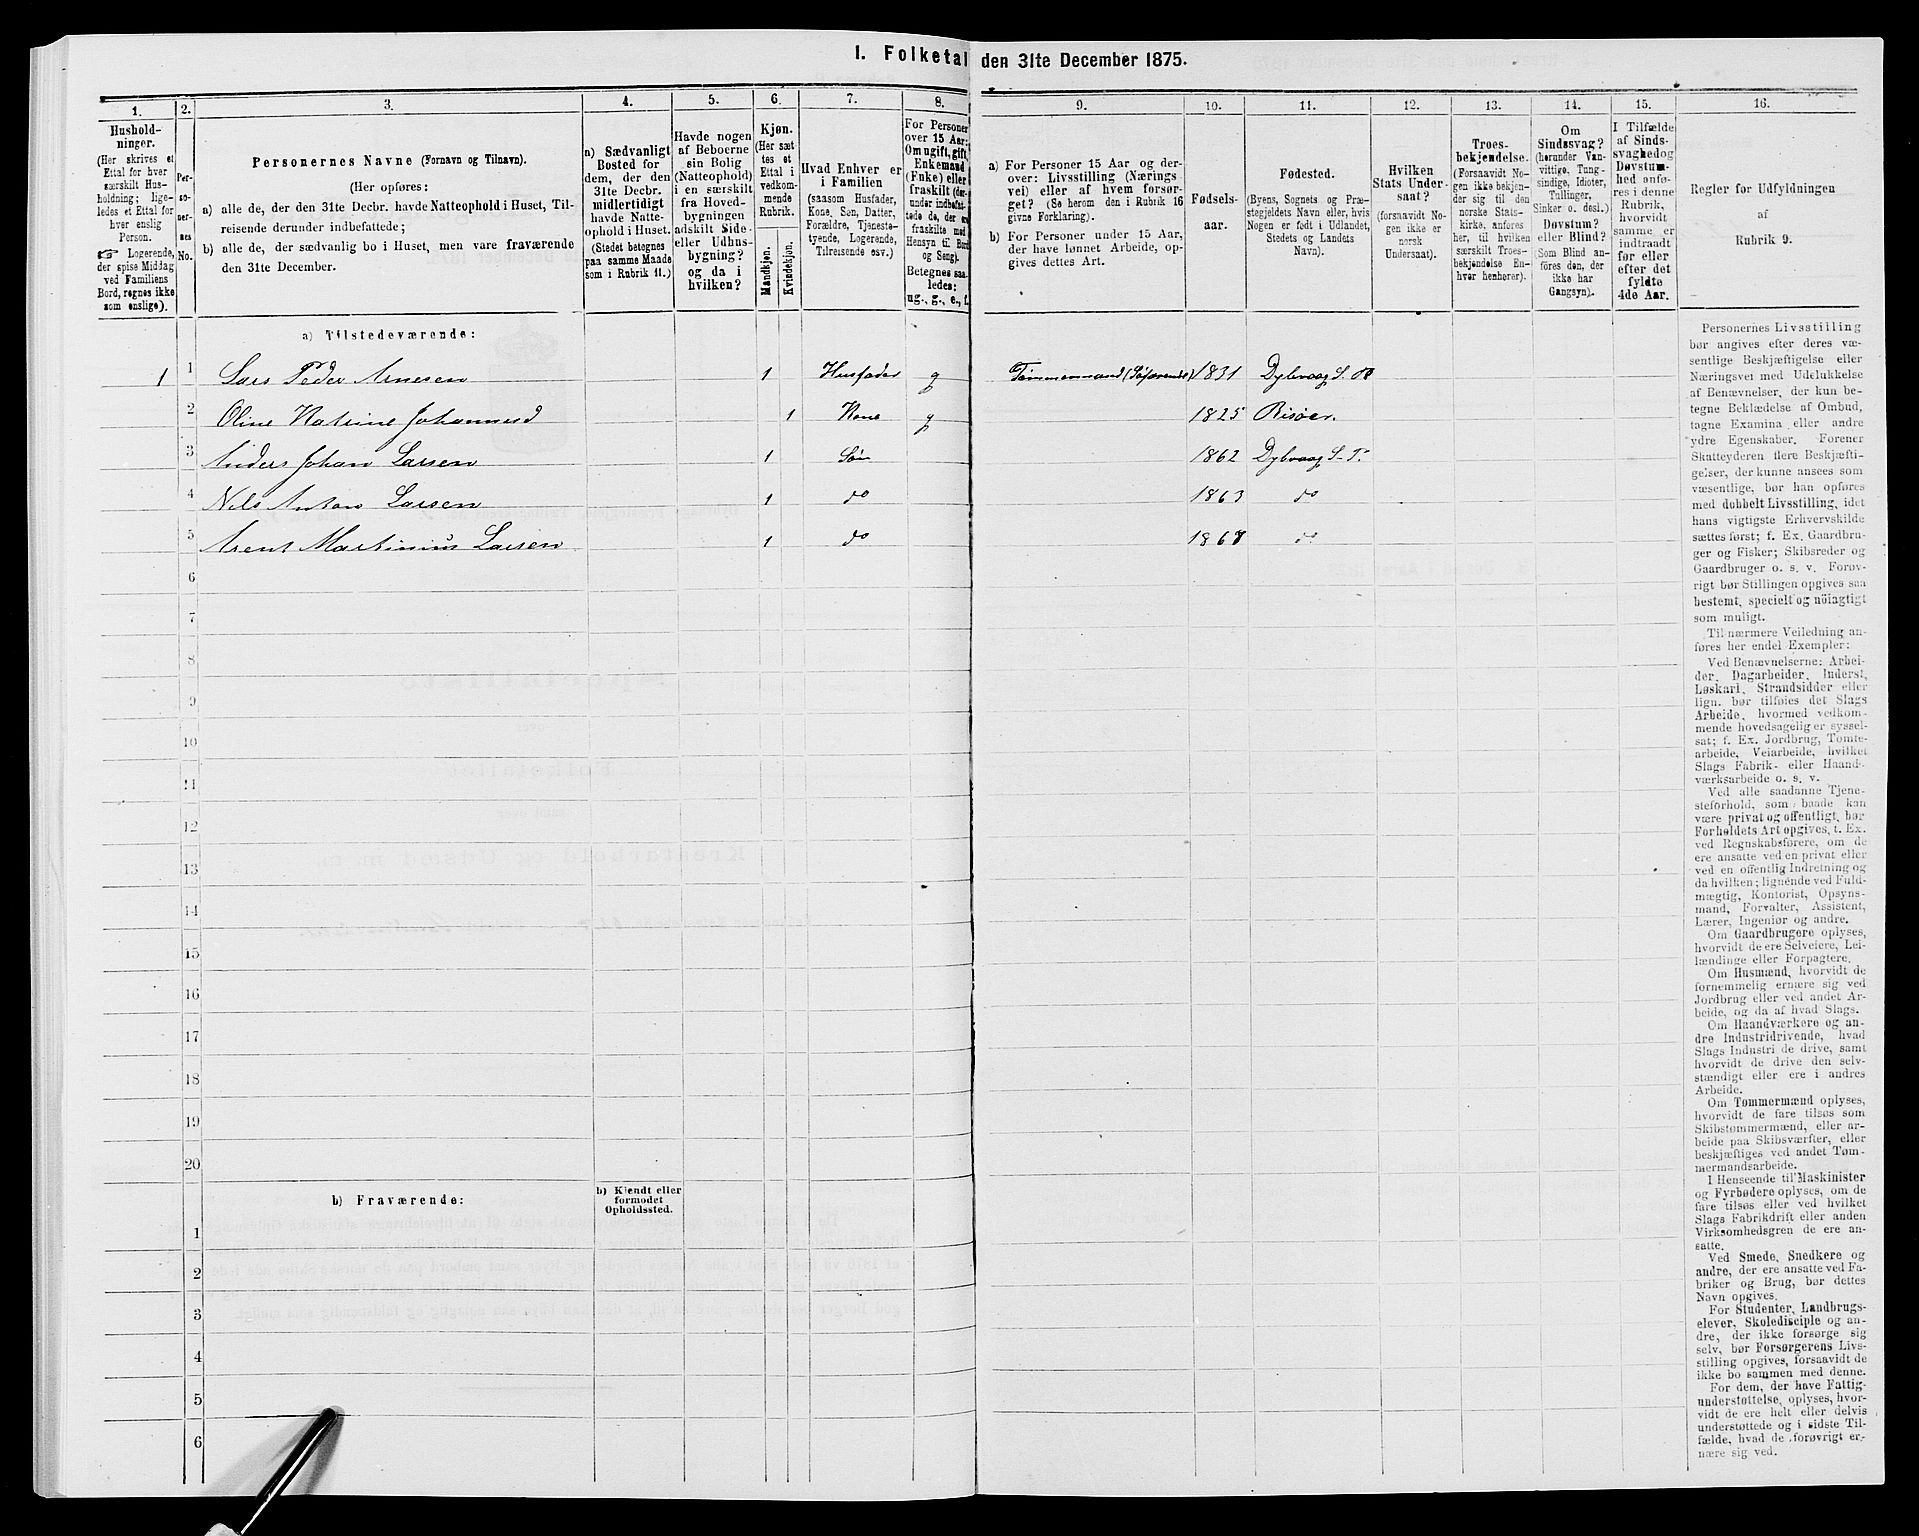 I. Folketal den 31te December 1875.
1.
2.
3.
4.
5.
6.
7.
8.
9.
10.
11.
12.
13.
14.
15.
16.
Hushold-
ninger.
(Her skrives et
Ettal for hver
særskilt Hus-
holdning; lige-
ledes et Ettal for
hver enslig
Person.
☞ Logerende,
der spise Middag
ved Familiens
Bord, regnes ikke
som enslige).
Per-
so-
ner-
nes
No.
Personernes Navne (Fornavn og Tilnavn).
(Her opføres:
a) alle de, der den 31te Decbr. havde Natteophold i Huset, Til-
reisende derunder indbefattede;
b) alle de, der sædvanlig bo i Huset, men vare fraværende
den 31te December.
a) Sædvanligt
Bosted for
dem, der den
31te Decbr.
midlertidigt
havde Natte-
ophold i Huset.
(Stedet betegnes
paa samme Maade
som i Rubrik 11.)
Havde nogen
af Beboerne
sin Bolig
(Natteophold)
i en særskilt
fra Hoved-
bygningen
adskilt Side-
eller Udhus-
bygning?
og da i
hvilken?
Kjøn.
(Her sæt
tes et
Ettal i
vedkom-
mende
Rubrik.
Mandkjøn.
Kvindekjøn.
Hvad Enhver er
i Familien
(saasom Husfader,
Kone, Søn, Datter,
Forældre, Tjeneste-
tyende, Logerende,
Tilreisende osv.)
For Personer
over 15 Aar:
Om ugift, gift,
Enkemand
(Enke) eller
fraskilt (der-
under indbefat-
tede de, der ere
fraskilte med
Hensyn til Bord
og Seng).
Betegnes saa-
ledes:
ug., g., e., f.
a) For Personer 15 Aar og der-
over: Livsstilling (Nærings-
vei) eller af hvem forsør-
get? (Se herom den i Rubrik 16
givne Forklaring).
b) For Personer under 15 Aar,
der have lønnet Arbeide, op-
gives dettes Art.
Fødsels-
aar.
Fødested.
(Byens, Sognets og Præ-
stegjeldets Navn eller, hvis
Nogen er født i Udlandet,
Stedets og Landets
Navn).
Hvilken
Stats Under-
saat?
(forsaavidt No-
gen ikke er
norsk
Undersaat).
Troes-
bekjendelse.
(Forsaavidt No-
gen ikke bekjen-
der sig til den
norske Stats-
kirke, anføres
her, til hvilken
særskilt Troes-
bekjendelse En-
hver henhører).
Om
Sindssvag?
(herunder Van-
vittige, Tung-
sindige, Idioter,
Tullinger,
Sinker o. desl.)
Døvstum?
eller Blind?
(Som Blind an-
føres den, der
ikke har
Gangsyn).
I Tilfælde
af Sinds-
svaghed og
Døvstum-
hed anfø-
res i denne
Rubrik,
hvorvidt
samme er
indtraadt
før eller
efter det
fyldte
4de Aar.
Regler før Udfyldningen
af
Rubrik 9.
a) Tilstedeværende:
1 1 Lars Peder Arnesen 1 Husfader g Tømmermand (Søfarende) 1831 Dybvaag S. P.
2 Oline Katrine Johannesd 1 Kone g 1825 Risøer.
3 Anders Johan Larsen 1 Søn 1862 Dybvaag S. P.
4 Nils Anton Larsen 1 do 1863 do
5 Arent Martinius Larsen 1 do 1867 do
6
7
8
9
10
11
12
13
14
15
16
17
18
19
20
b) Fraværende:
b) Kjendt eller
formodet
Opholdssted.
1
2
3
4
5
6
Personernes Livsstilling
bør angives efter deres væ-
sentlige Beskjæftigelse eller
Næringsvei med Udelukkelse
af Benævnelser, der kun be-
tegne Beklædelse af Ombud,
tagne Examina eller andre
ydre Egenskaber. Forener
Skatteyderen flere Beskjæfti-
gelser, der kunne ansees som
væsentlige, bør han opføres
med dobbelt Livsstilling, idet
hans vigtigste Erhvervskilde
sættes først; f. Ex. Gaardbru-
ger og Fisker; Skibsreder og
Gaardbruger o. s. v. Forøv-
rigt bør Stillingen opgives saa
bestemt, specielt og nöiagtigt
som muligt.
Til nærmere Veiledning an-
føres her endel Exempler:
Ved Benævnelserne: Arbei-
der, Dagarbeider, Inderst,
Løskarl, Strandsidder eller
lign. bør tilføies det Slags
Arbeide, hvormed vedkom-
mende hovedsagelig er syssel-
sat; f. Ex. Jordbrug, Tomte-
arbeide, Veiarbeide, hvilket
Slags Fabrik- eller Haand-
værksarbeide o. s. v.
Ved alle saadanne Tjene-
steforhold, som baade kan
være privat og offentligt, bør
Forholdets Art opgives, t. Ex.
ved Regnskabsførere, om de
ere ansatte ved en privat eller
ved en offentlig Indretning og
da hvilken; lignende ved Fuld-
mægtig, Kontorist, Opsyns-
mand, Forvalter, Assistent,
Lærer, Ingeniør og andre.
Om Gaardbrugere oplyses,
hvorvidt de ere Selveiere, Lei-
lændinge eller Forpagtere.
Om Husmænd, hvorvidt de
fornemmelig ernære sig ved
Jordbrug eller ved andet Ar-
beide, og da af hvad Slags.
Om Haandværkere og an-
dre Industridrivende, hvad
Slags Industri de drive, samt
hvorvidt de drive den selv-
stændigt eller ere i andres
Arbeide.
Om Tømmermænd oplyses,
hvorvidt de fare tilsøs som
Skibstømmermænd, eller ar-
beide paa Skibsværfter, eller
beskjæftiges ved andet Tøm-
mermandsarbeide.
I Henseende til Maskinister
og Fyrbødere oplyses, om de
fare tilsøs eller ved hvilket
Slags Fabrikdrift eller anden
Virksomhedsgren de ere an-
satte.
Ved Smede, Snedkere og
andre, der ere ansatte ved Fa-
briker og Brug, bør dettes
Navn opgives.
For Studenter, Landbrugs-
elever, Skoledisciple og an-
dre, der ikke forsørge sig
selv, bør Forsørgerens Livs-
stilling opgives, forsaavidt de
ikke bo sammen med denne.
For dem, der have Fattig-
understøttelse, oplyses, hvor-
vidt de ere helt eller delvis
understøttede og i sidste Til-
fælde, hvad de forøvrigt er-
nære sig ved.